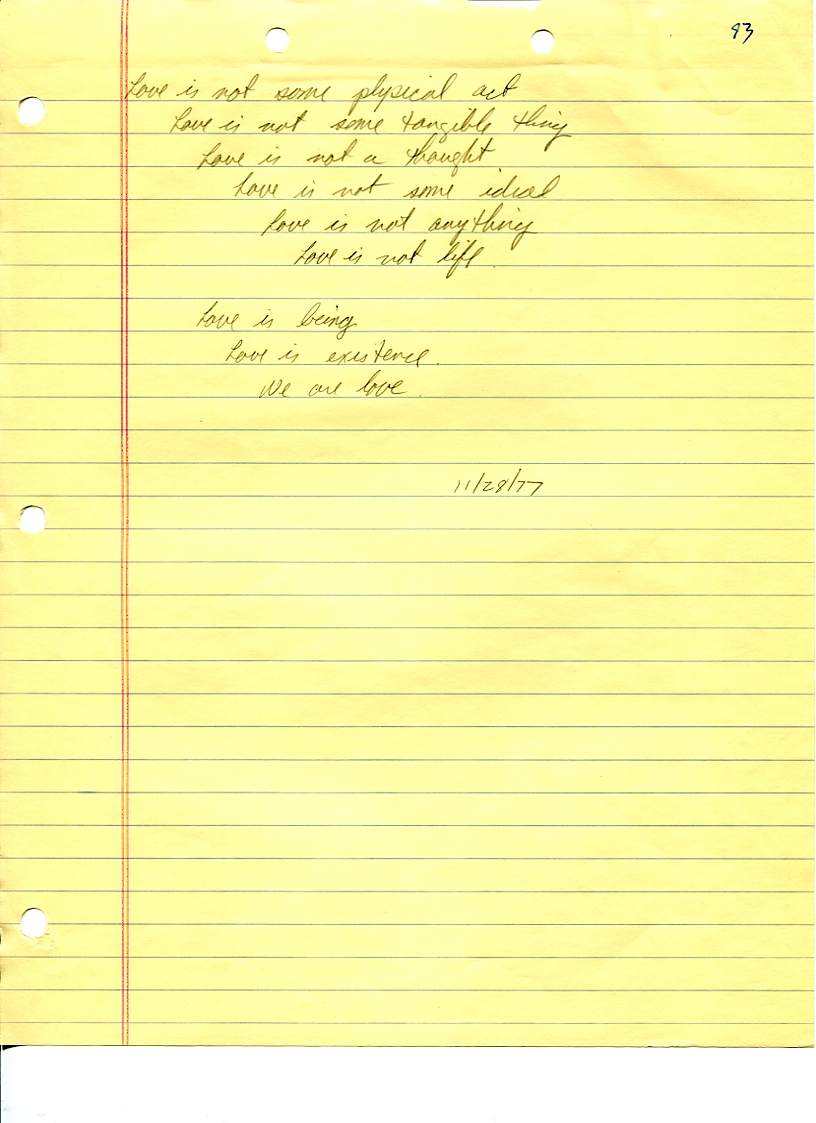 93
Love is not some physical act
Love is not some tangible thing
Love is not a thought
Love is not some ideal
Love is not anything
Love is not life.
Love is being
Love is existence.
We are love.
11/28/77